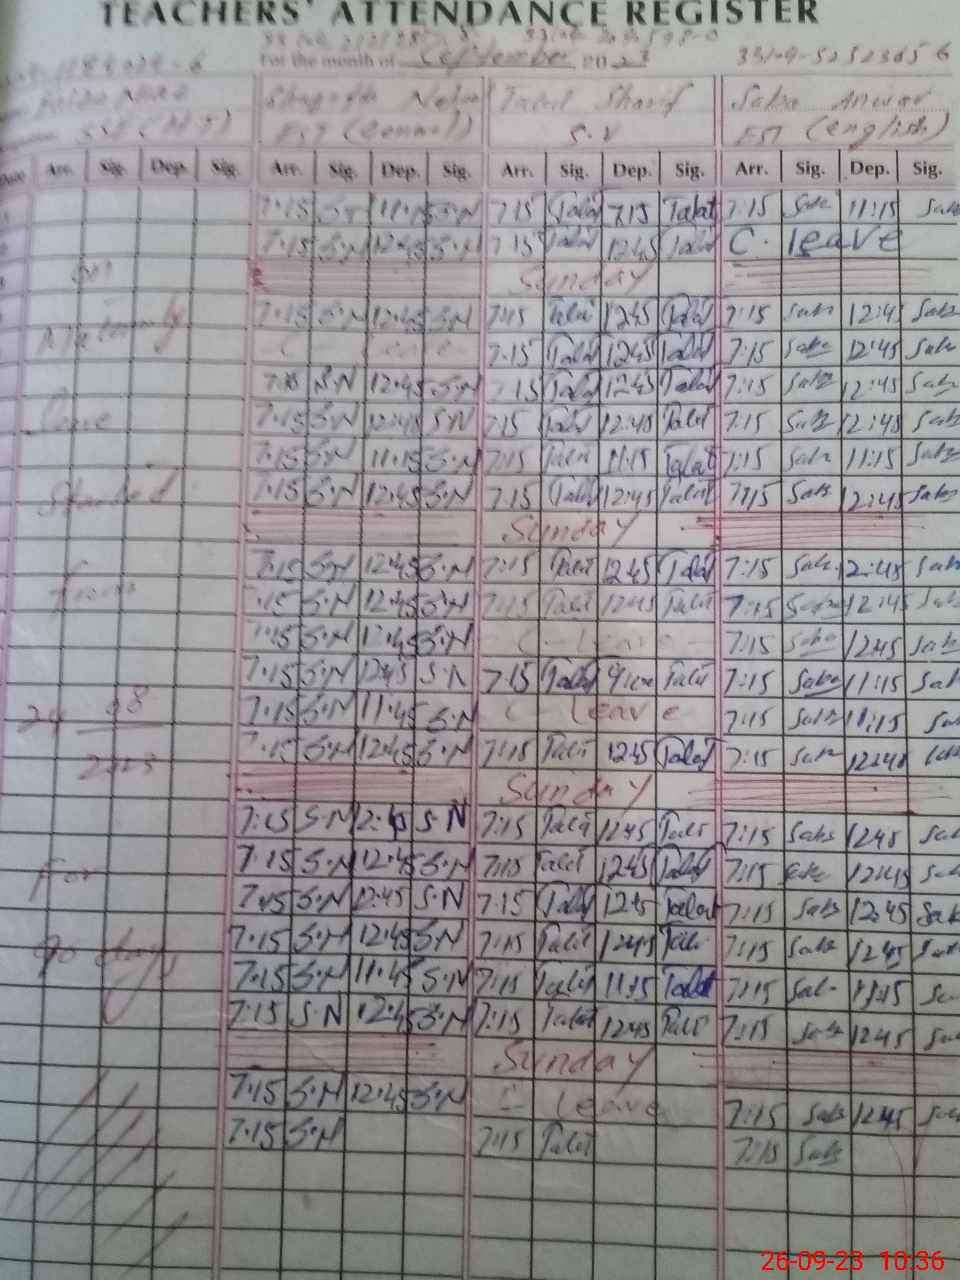 TEACHERS' ATTENDANCE REGISTER
For the month of September 2023 33104-5252365 6
Talat Sharif Saba Anwar
EST (General) S.V EST (English)
Date Arr. Sig. Dep. Sig. Arr. Sig. Dep. Sig. Arr. Sig. Dep. Sig. Arr. Sig. Dep. Sig.
7:15 S.N 11:15 S.N 7:15 Talat 7:15 Talat 7:15 Saba 11:15 Saba
7:15 S.N 12:45 S.N 7:15 Talat 12:45 Talat C. leave
on Sunday
Maternity 7:15 S.N 12:45 S.N 7:15 Talat 12:45 Talat 7:15 Saba 12:45 Saba
C leave 7:15 Talat 12:45 Talat 7:15 Saba 12:45 Saba
7:15 S.N 12:45 S.N 7:15 Talat 12:45 Talat 7:15 Saba 12:45 Saba
leave 7:15 S.N 12:45 S.N 7:15 Talat 12:45 Talat 7:15 Saba 12:45 Saba
7:15 S.N 11:15 S.N 7:15 Talat 11:15 Talat 7:15 Saba 11:15 Saba
Started 7:15 S.N 12:45 S.N 7:15 Talat 12:45 Talat 7:15 Saba 12:45 Saba
Sunday
from 7:15 S.N 12:45 S.N 7:15 Talat 12:45 Talat 7:15 Saba 12:45 Saba
7:15 S.N 12:45 S.N 7:15 Talat 12:45 Talat 7:15 Saba 12:45 Saba
7:15 S.N 12:45 S.N C - Leave - 7:15 Saba 12:45 Saba
7:15 S.N 12:45 S.N 7:15 Talat Talat 7:15 Saba 11:15 Saba
24 08 7:15 S.N 11:45 S.N C - Leave - 7:15 Saba 11:15 Saba
2023 7:15 S.N 12:45 S.N 7:15 Talat 12:45 Talat 7:15 Saba 12:45 Saba
Sunday
7:15 S.N 12:45 S.N 7:15 Talat 12:45 Talat 7:15 Saba 12:45 Saba
For 7:15 S.N 12:45 S.N 7:15 Talat 12:45 Talat 7:15 Saba 12:45 Saba
7:15 S.N 12:45 S.N 7:15 Talat 12:45 Talat 7:15 Saba 12:45 Saba
90 days 7:15 S.N 12:45 S.N 7:15 Talat 12:45 Talat 7:15 Saba 12:45 Saba
7:15 S.N 11:45 S.N 7:15 Talat 11:15 Talat 7:15 Saba 11:15 Saba
7:15 S.N 12:45 S.N 7:15 Talat 12:45 Talat 7:15 Saba 12:45 Saba
Sunday
7:15 S.N 12:45 S.N C - Leave 7:15 Saba 12:45 Saba
7:15 S.N 7:15 Talat 7:15 Saba
26-09-23 10:36